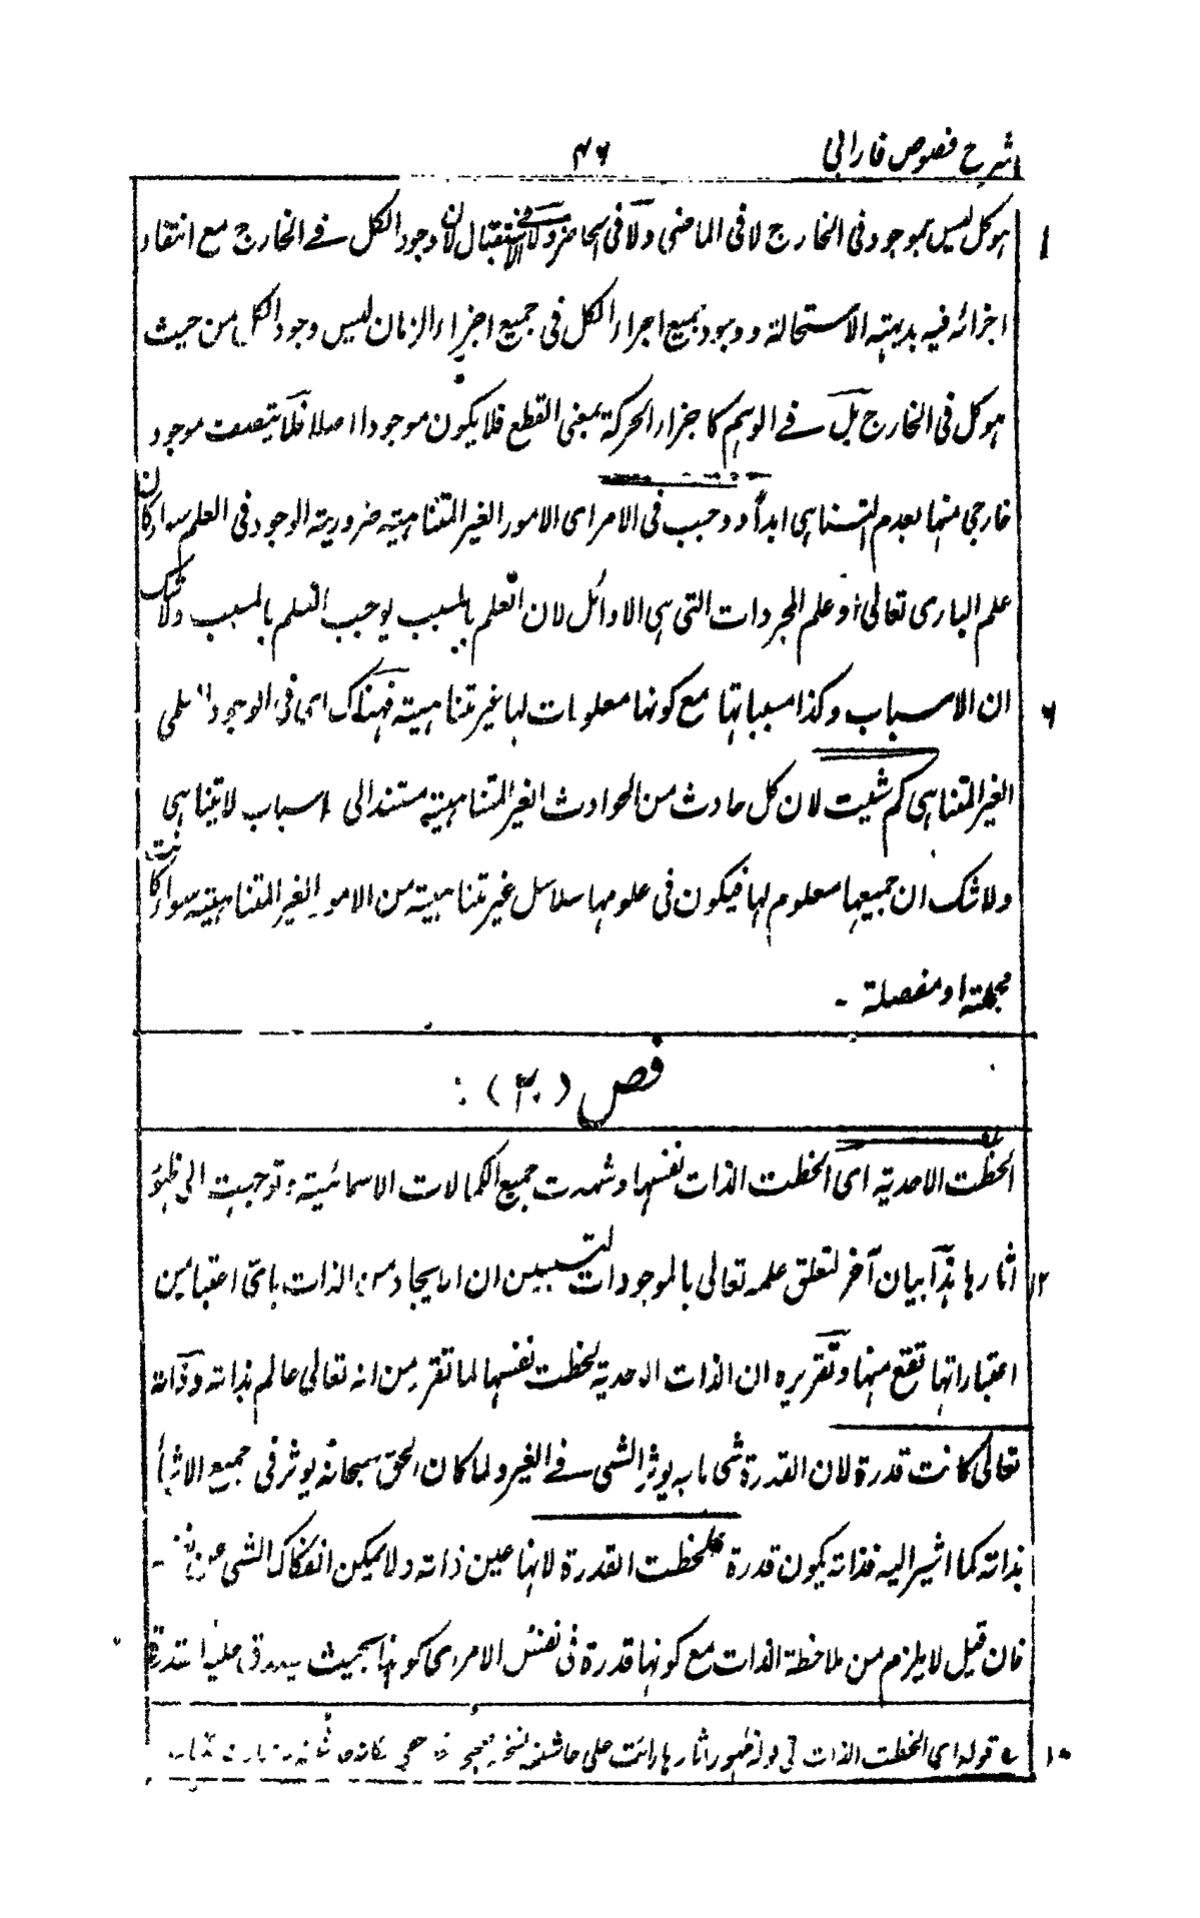 شرح فصوص فارابی ۴۶
هو کل لیس بموجود فی الخارج لا فی الماضی ولا فی الحاضر ولا فی الاستقبال لان وجود الکل فے الخارج مع انتفاء
اجزائه فیه بدیهیة الاستحالة ووجود جمیع اجزاء الکل فی جمیع اجزاء الزمان لیس وجود الکل من حیث
هو کل فی الخارج بل فے الوهم کاجزاء الحرکة بمعنی القطع فلا یکون موجودا اصلا فلا یتصف موجود
خارجی منها بعدم التناهی ابداً ووجب فی الامر ای الامور الغیر المتناهیة ضروریة الوجود فی العلم سواء کان
علم الباری تعالی او علم المجردات التی هی الاوائل لان العلم بالسبب یوجب العلم بالمسبب ولا شک
۶ ان الاسباب وکذا مسبباتها مع کونها معلومات لها غیر متناهیة فهناک ای فی الوجود العلمی
الغیر المتناهی کم شیت لان کل حادث من الحوادث الغیر المتناهیة مستند الی اسباب لا یتناهی
ولا شک ان جمیعها معلوم لها فیکون فی علومها سلاسل غیر متناهیة من الامور الغیر المتناهیة سواء کانت
مجملة او مفصلة -
فص (۳۰) :
لحظت الاحدیة ای لحظت الذات نفسها وشهدت جمیع الکمالات الاسمائیة وتوجهت الی ظهور
۱۲ آثارها هذا بیان آخر لتعلق علمه تعالی بالموجودات لتبیین ان الایجاد من الذات بای اعتبار من
اعتباراتها تقع منها وتقریره ان الذات الاحدیة لحظت نفسها لما تقرر من انه تعالی عالم بذاته وذاته
تعالی کانت قدرة لان القدرة شی ما به یوثر الشی فے الغیر ولما کان الحق سبحانه یوثر فی جمیع الاشیاء
بذاته کما اشیر الیه فذاته یکون قدرة فلحظت القدرة لانها عین ذاته ولا یمکن انفکاک الشی عن نفسه -
فان قیل لا یلزم من ملاحظة الذات مع کونها قدرة فی نفس الامر ای کونها بحیث یصدق علیها القدرة
۱۰ قوله ای لحظت الذات فی قوله ظهور آثارها رائت علی حاشیة نسخة